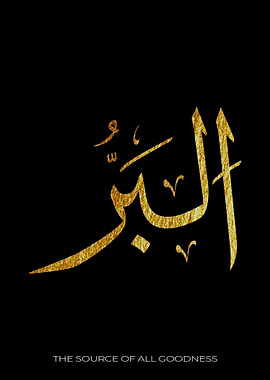 البَرُّ
THE SOURCE OF ALL GOODNESS